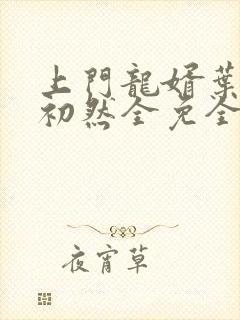 上門龍婿葉
初然全免全
夜宵草